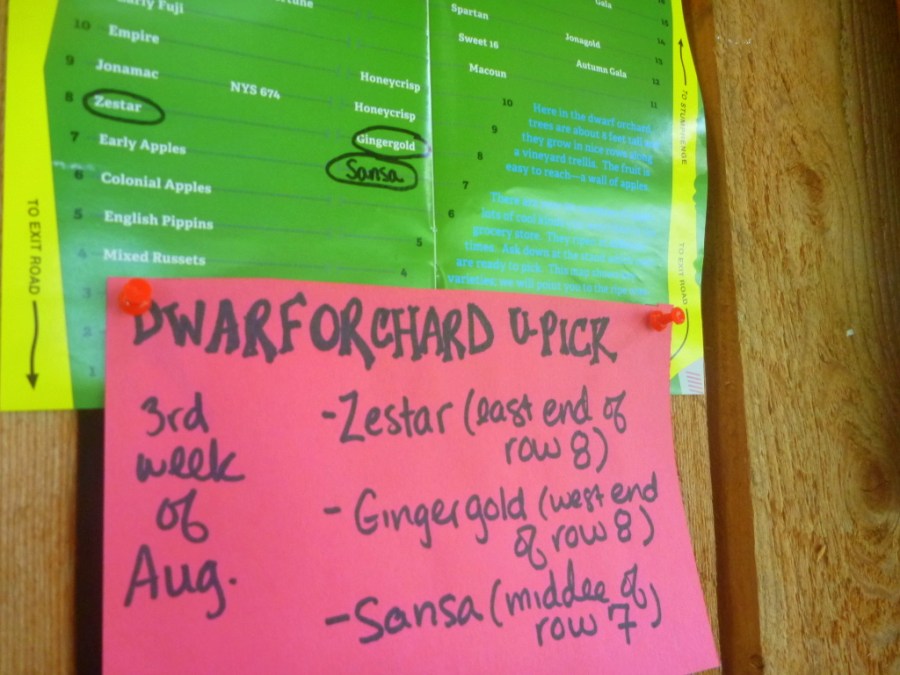 Early Fuji
10
Empire
9
Jonamac
NYS 674
Honeycrisp
8
Zestar
Honeycrisp
7
Early Apples
Gingergold
6
Colonial Apples
Sansa
5
English Pippins
5
4
Mixed Russets
4
3
2
1
TO EXIT ROAD
Spartan
Gala
Sweet 16
Jonagold
Macoun
Autumn Gala
15
14
13
12
11
10
9
8
7
6
Here in the dwarf orchard,
trees are about 8 feet tall
they grow in nice rows
a vineyard trellis. The fruit is
easy to reach—a wall of apples.
There
lots of cool
grocery store. They
times. Ask down at the
are ready to pick. This map
varieties; we will point you to the
TO
TO EXIT ROAD
DWARF ORCHARD U-PICK
3rd
week
of
Aug.
-Zestar (east end of
row 8)
- Gingergold (west end
of row 8)
-Sansa (middle of
row 7)